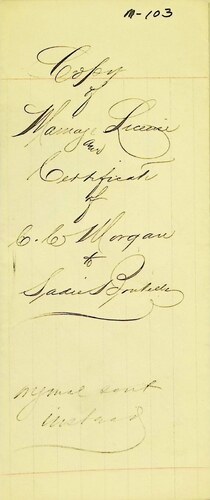 M-103
Copy
of
Marriage License
and
Certificate
of
C. C. Morgan
to
Sadie
sent
instead